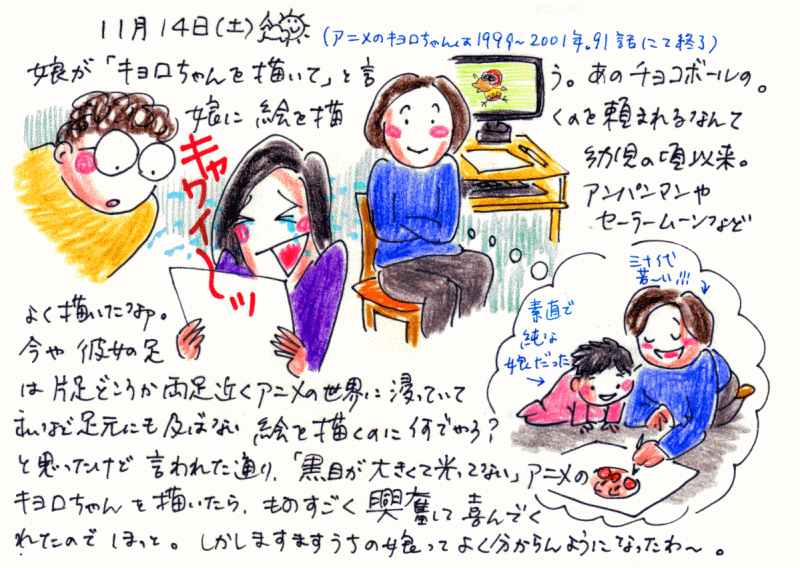 11月14日(土)
(アニメのキョロちゃんは1999〜2001年。91話にて終了)
娘が「キョロちゃんを描いて」と言う。あのチョコボールの。
娘に絵を描くのを頼まれるなんて
幼児の頃以来。
アンパンマンや
セーラームーンなど
よく描いたなぁ。
今や彼女の足
は片足どころか両足近くアニメの世界に浸っていて
私など足元にも及ばない絵を描くのに何でやろ?
と思ったけど言われた通り、「黒目が大きくて光ってない」アニメの
キョロちゃんを描いたら、ものすごく興奮して喜んでく
れたのでほっと。しかしますますうちの娘ってよく分からんようになったわ〜。
キャワイィーッ
三十代
若〜い!!!
素直で
純な
娘だった